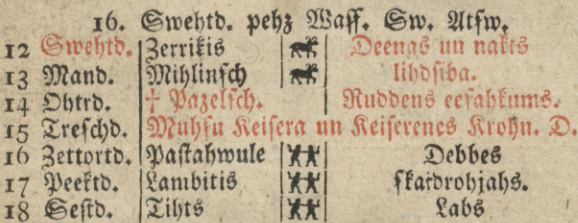 16. Swehtd. pehz Wass. Sw. Atsw.
12 Swehtd. Zerrikis Deenas un nakts
13 Mand. Mihlinsch lihdsiba.
14 Ohtrd. † Pazelsch. Ruddens eesahkums.
15 Treschd. Muhsu Keisera un Keiserenes Krohn. D.
16 Zettortd. Pastahwule Debbes
17 Peektd. Lambitis skaidrohjahs.
18 Sestd. Tihts Labs